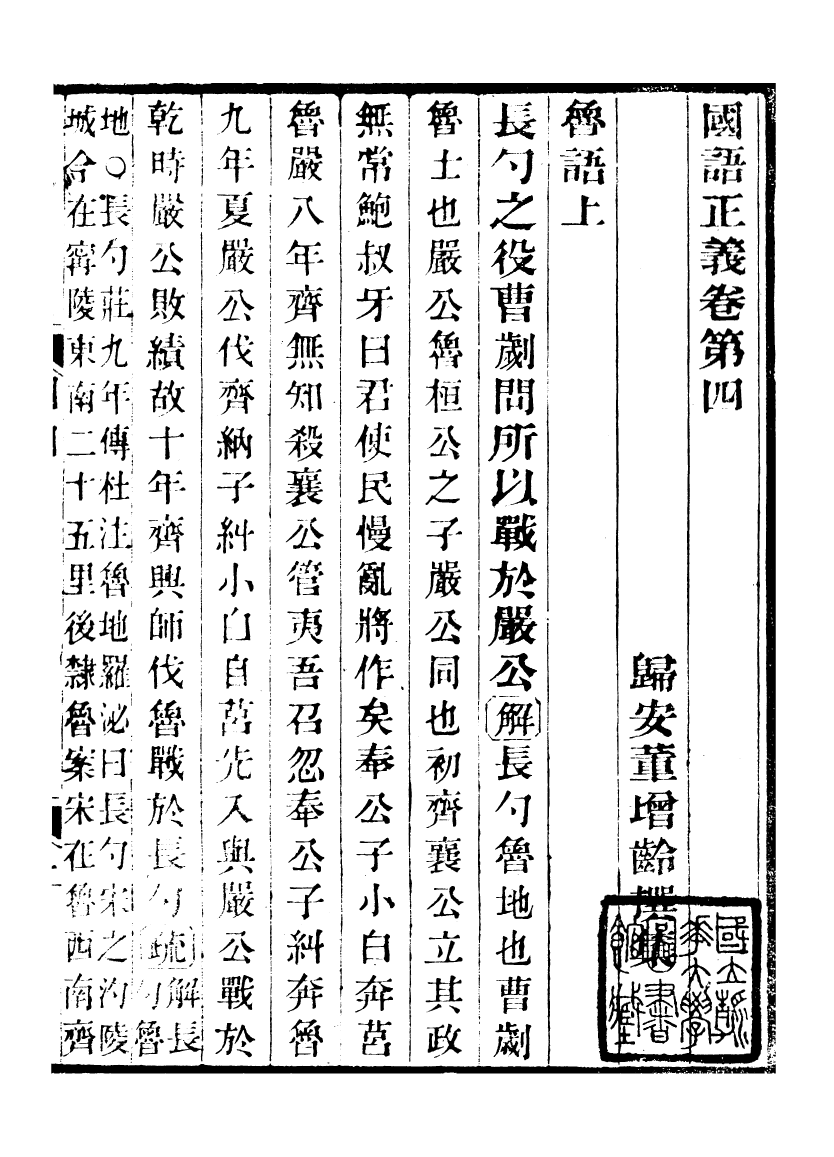 國語正義卷第四
歸安董增齡撰集
魯語上
長勺之役曹劌問所以戰於嚴公解長勺魯地也曹劌
魯士也嚴公魯桓公之子嚴公同也初齊襄公立其政
無常鮑叔牙曰君使民慢亂將作矣奉公子小白奔莒
魯嚴八年齊無知殺襄公管夷吾召忽奉公子糾奔魯
九年夏嚴公伐齊納子糾小白自莒先入與嚴公戰於
乾時嚴公敗績故十年齊興師伐魯戰於長勺疏解長
勺魯
地○長勺莊九年傳杜注魯地羅泌曰長勺宋之沟陵
城合在甯陵東南二十五里後隸魯案宋在魯西南齊